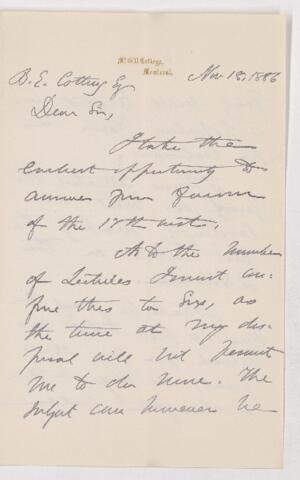 McGill College,
Montreal.
Nov 18, 1886
B. E. Cotting Esq
Dear Sir,
I take the
earliest opportunity to
answer your favour
of the 17th inst.
As to the number
of Lectures I must con-
fine this to Six, as
the time at my dis-
posal will not permit
me to do more. The
subject can however be